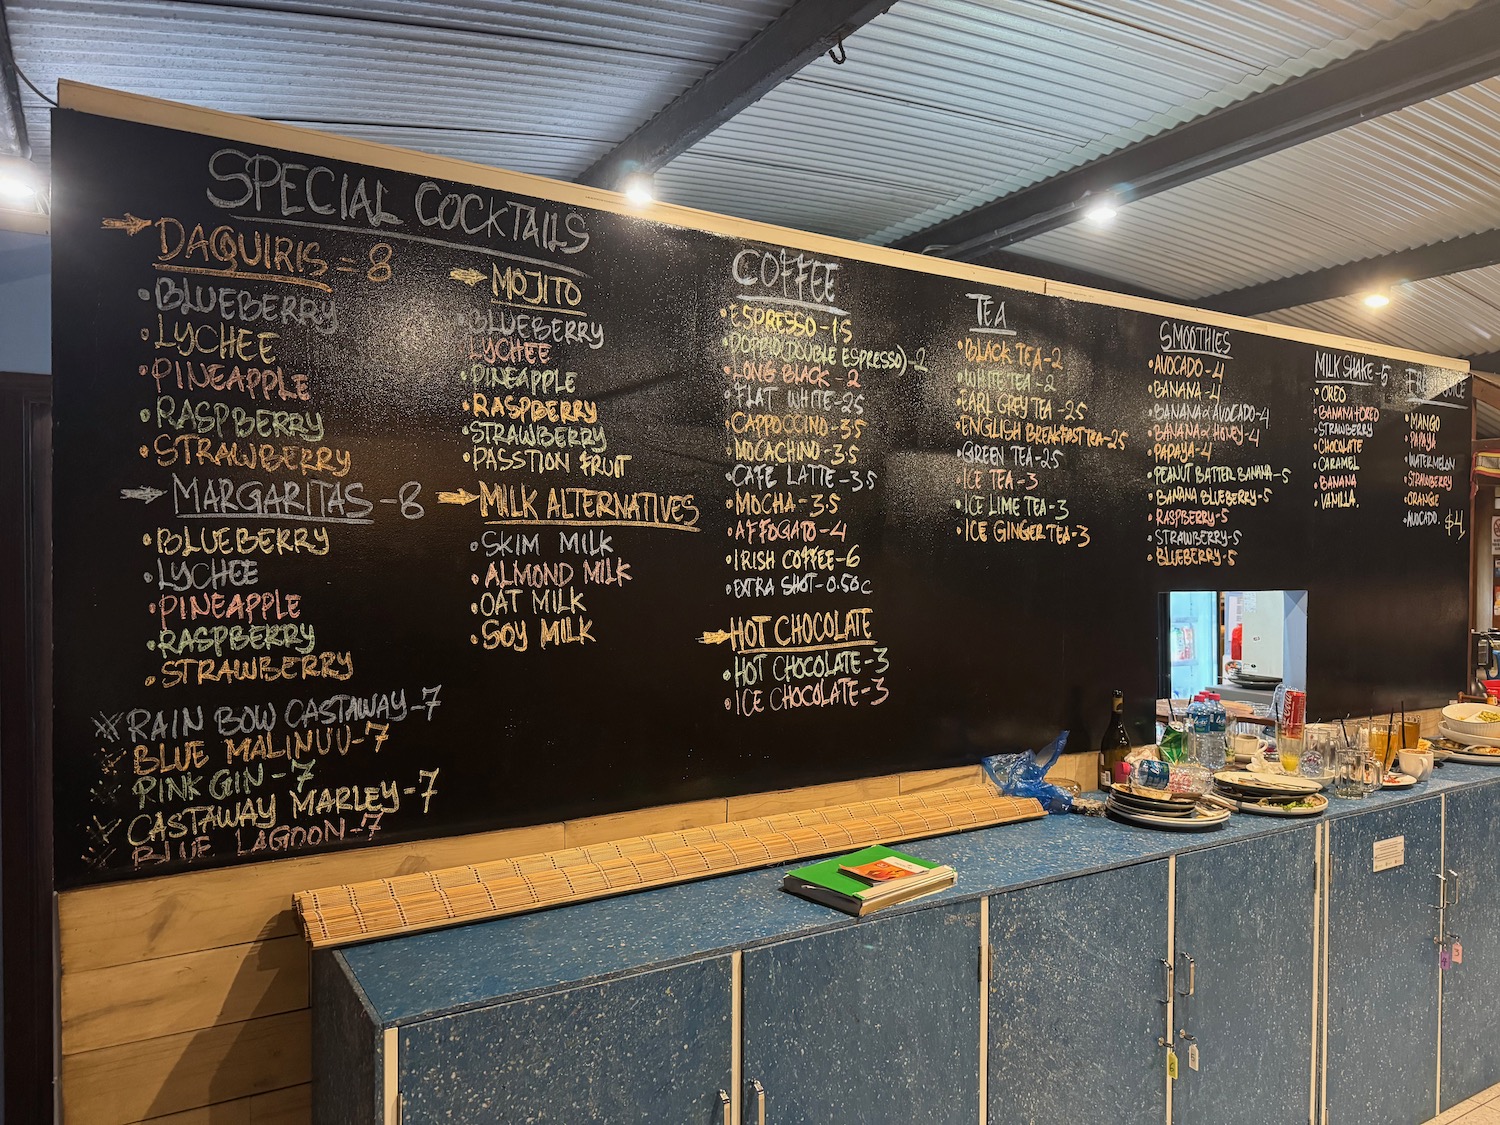 SPECIAL COCKTAILS
DAQUIRIS = 8
BLUEBERRY
LYCHEE
PINEAPPLE
RASPBERRY
STRAWBERRY
MARGARITAS - 8
BLUEBERRY
LYCHEE
PINEAPPLE
RASPBERRY
STRAWBERRY
RAIN BOW CASTAWAY - 7
BLUE MALINUU - 7
PINK GIN - 7
CASTAWAY MARLEY - 7
BLUE LAGOON - 7
MOJITO
BLUEBERRY
LYCHEE
PINEAPPLE
RASPBERRY
STRAWBERRY
PASSTION FRUIT
MILK ALTERNATIVES
SKIM MILK
ALMOND MILK
OAT MILK
SOY MILK
COFFEE
ESPRESSO - 1.5
DOPPIO (DOUBLE ESPRESSO) - 2
LONG BLACK - 2
FLAT WHITE - 2.5
CAPPOCCINO - 3.5
MOCACHINO - 3.5
CAFE LATTE - 3.5
MOCHA - 3.5
AFFOGATO - 4
IRISH COFFEE - 6
EXTRA SHOT - 0.50c
HOT CHOCOLATE
HOT CHOCOLATE - 3
ICE CHOCOLATE - 3
TEA
BLACK TEA - 2
WHITE TEA - 2
EARL GREY TEA - 2.5
ENGLISH BREAKFAST TEA - 2.5
GREEN TEA - 2.5
ICE TEA - 3
ICE LIME TEA - 3
ICE GINGER TEA - 3
SMOOTHIES
AVOCADO - 4
BANANA - 4
BANANA & AVOCADO - 4
BANANA & HONEY - 4
PAPAYA - 4
PEANUT BATTER BANANA - 5
BANANA BLUEBERRY - 5
RASPBERRY - 5
STRAWBERRY - 5
BLUEBERRY - 5
MILK SHAKE - 5
OREO
BANANA & OREO
STRAWBERRY
CHOCOLATE
CARAMEL
BANANA
VANILLA.
MANGO
PAPAYA
WATERMELON
STRAWBERRY
ORANGE
AVOCADO. $4